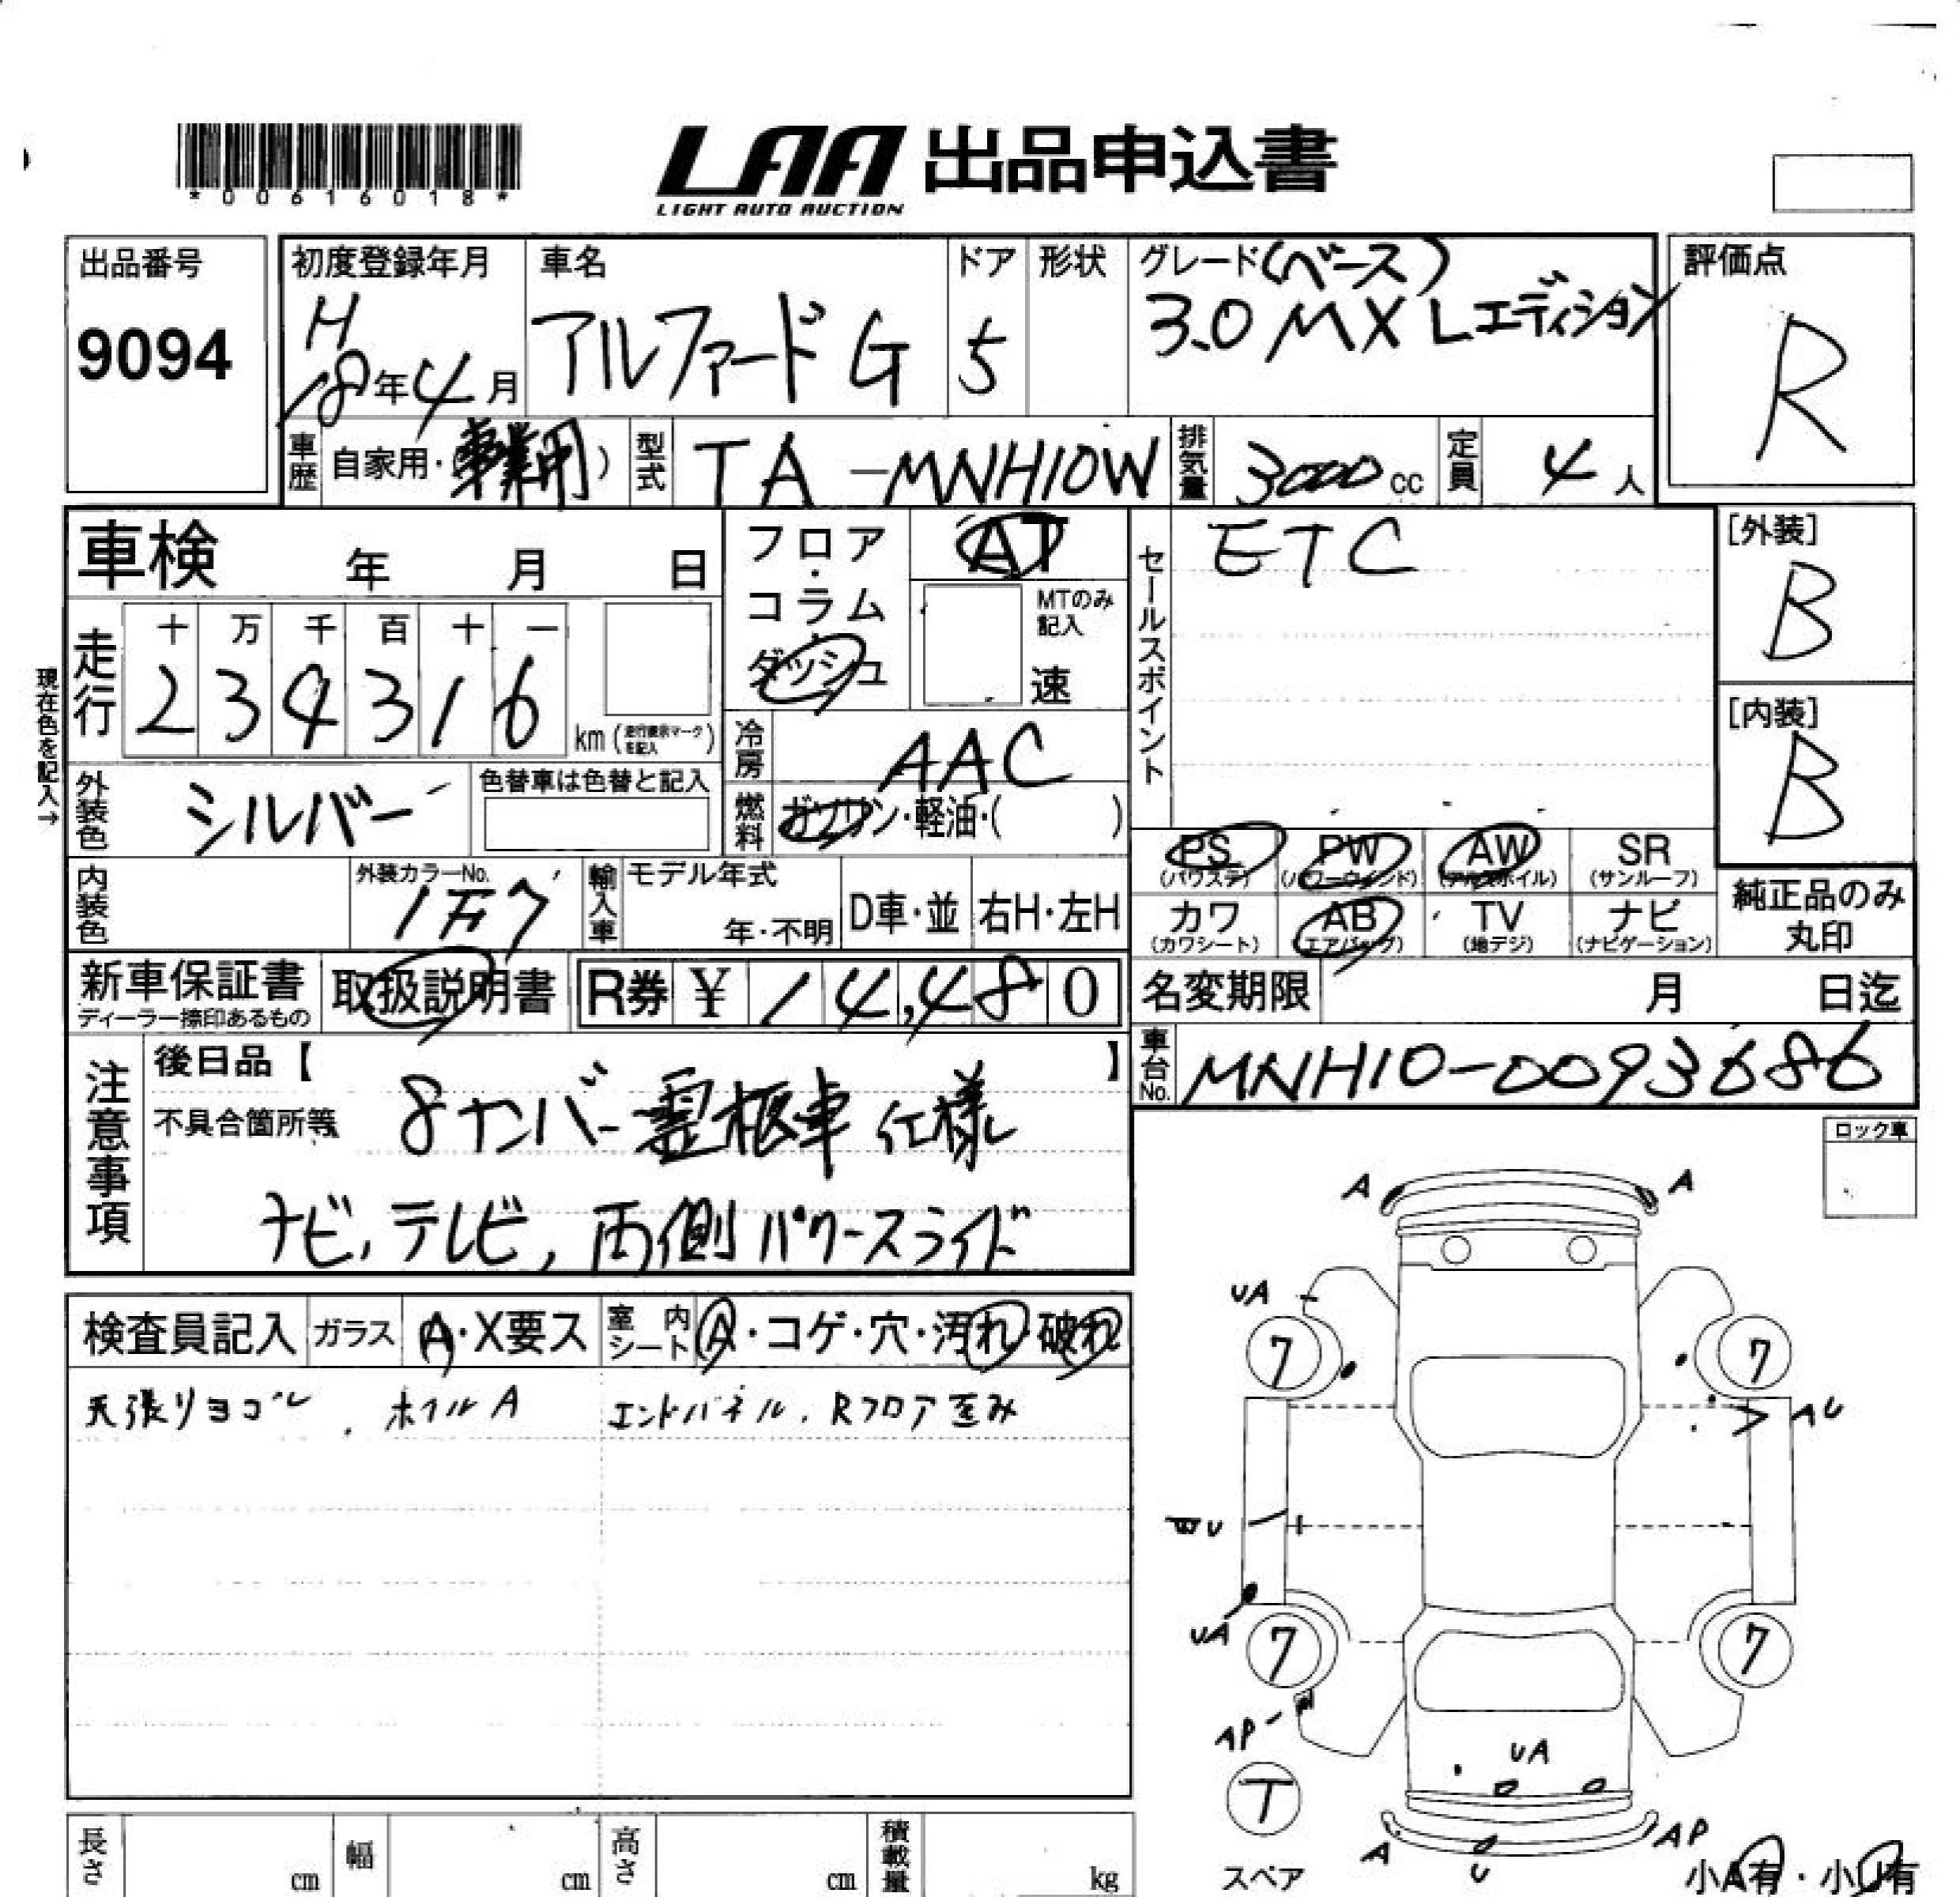 *00616018*
LAA 出品申込書
LIGHT AUTO AUCTION
出品番号
9094
初度登録年月
H
18年4月
車名
アルファードG
ドア
5
形状
グレード(ベース)
3.0 MX Lエディション
評価点
R
車歴
自家用・(事業用)
型式
TA-MNH10W
排気量
3000cc
定員
4人
車検 年 月 日
フロア・コラム・ダッシュ
AT
MTのみ記入
速
セールスポイント
ETC
[外装]
B
[内装]
B
現在色を記入→
走行
十 万 千 百 十 一
2 3 4 3 1 6
km(走行表示マークを記入)
冷房
AAC
外装色
シルバー
色替車は色替と記入
燃料
ガソリン・軽油・( )
PS
(パワステ)
PW
(パワーウィンド)
AW
(アルミホイル)
SR
(サンルーフ)
内装色
外装カラーNo.
1F7
輸入車
モデル年式
年・不明
D車・並
右H・左H
カワ
(カワシート)
AB
(エアバッグ)
TV
(地デジ)
ナビ
(ナビゲーション)
純正品のみ
丸印
新車保証書
ディーラー捺印あるもの
取扱説明書
R券 ¥ 14,480
名変期限 月 日迄
車台No.
MNH10-0093686
注意事項
後日品【 】
不具合箇所等
8ナンバー霊柩車仕様
ナビ,テレビ,両側パワースライド
ロック車
検査員記入
ガラス
A・X要ス
室内シート
A・コゲ・穴・汚れ・破れ
天張りヨゴレ.ホイルA
エンドパネル.Rフロア歪み
A
A
UA
7
7
AU
U
UA
7
7
AP
UA
T
スペア
A
U
AP
小A有・小U有
長さ
cm
幅
cm
高さ
cm
積載量
kg